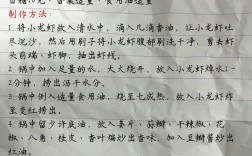 香醋10克，香菜适量，食用油适量
制作方法：
1. 将小龙虾放入清水中，滴入几滴香油，让小龙虾吐
尽泥沙，然后用刷子将小龙虾腹部刷洗干净，剪去虾
头前端、虾脚，抽出虾线。
2. 锅中加入足量的水，大火烧开，放入小龙虾焯水1-
2分钟，捞出沥干水分。
3. 锅中倒入适量食用油，烧至七成热，放入小龙虾炸
至变红捞出。
4. 锅中留少许底油，放入姜片、蒜瓣、干辣椒、花
椒、八角、桂皮、香叶煸炒出香味，加入豆瓣酱炒出
红油。